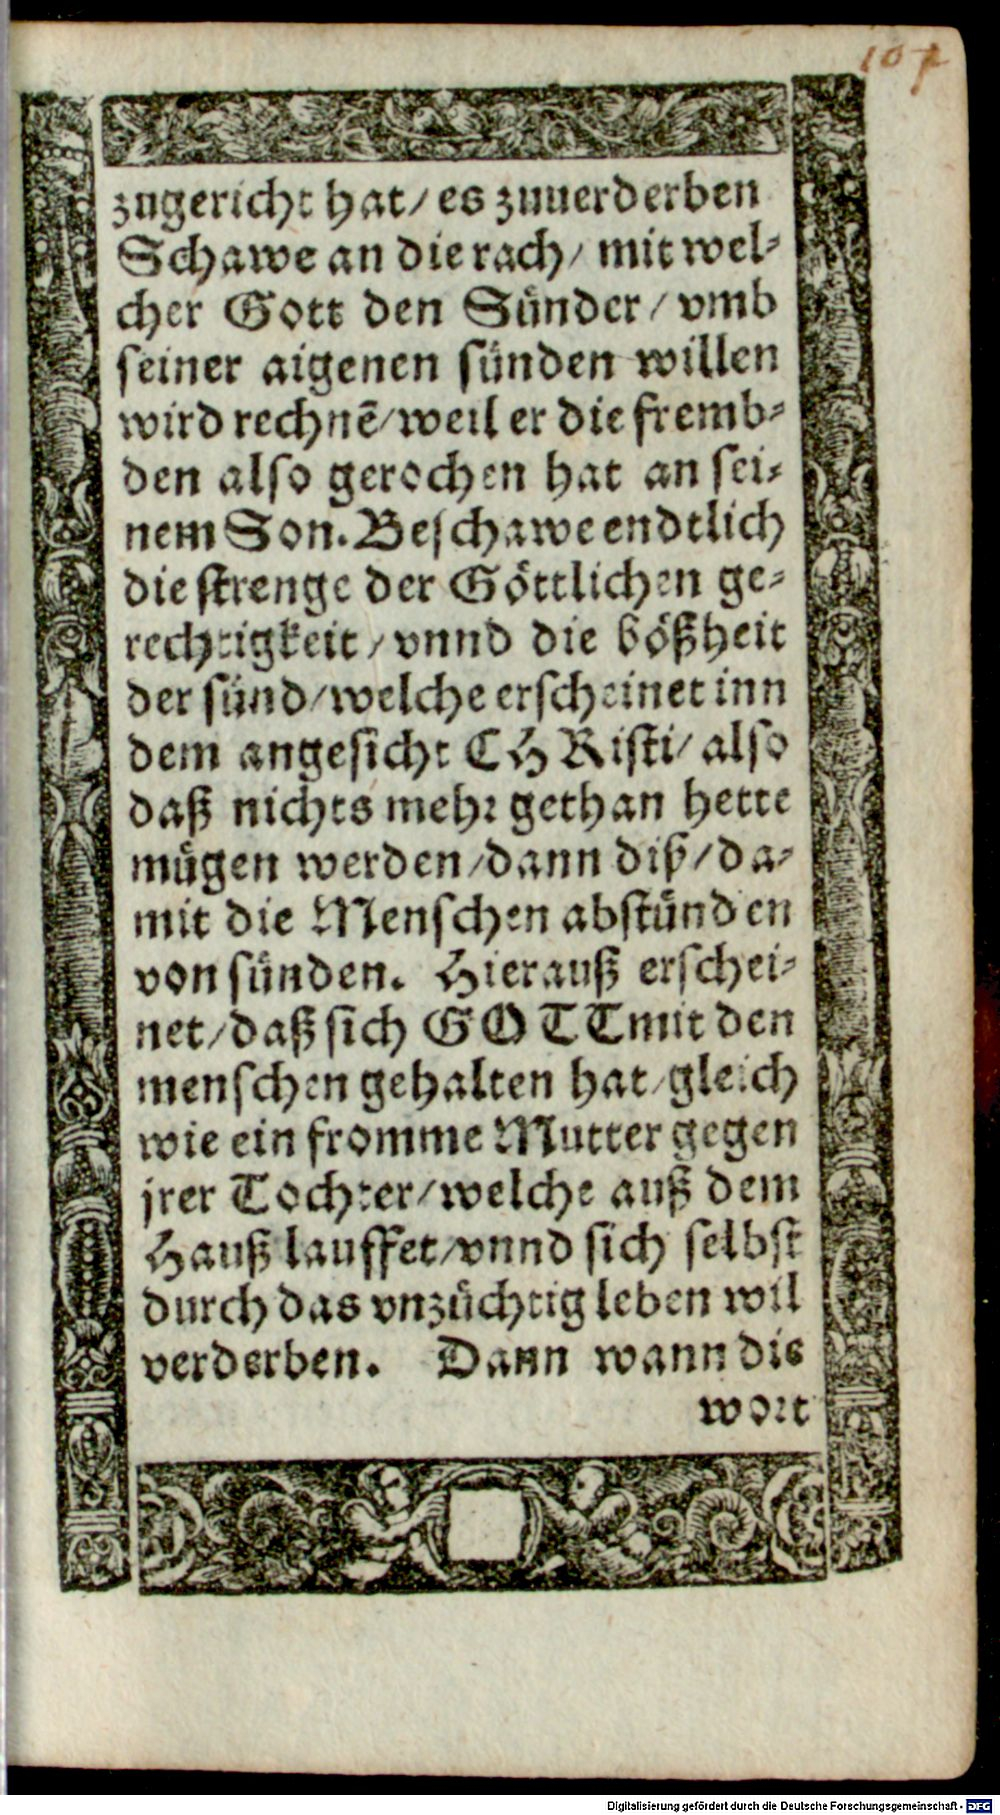 107
zugericht hat/ es zuuerderben
Schawe an die rach/ mit wel⸗
cher Gott den Sünder/ vmb
seiner aigenen sünden willen
wird rechnẽ/ weil er die fremb⸗
den also gerochen hat an sei⸗
nem Son. Beschawe endtlich
die strenge der Göttlichen ge⸗
rechtigkeit/ vnnd die bößheit
der sünd/ welche erscheinet inn
dem angesicht CHRisti/ also
daß nichts mehr gethan hette
mügen werden/ dann diß/ da⸗
mit die Menschen abstünden
von sünden. Hierauß erschei⸗
net/ daß sich GOTT mit den
menschen gehalten hat/ gleich
wie ein fromme Mutter gegen
jrer Tochter/ welche auß dem
Hauß lauffet/ vnnd sich selbst
durch das vnzüchtig leben wil
verderben. Dann wann die
wort
Digitalisierung gefördert durch die Deutsche Forschungsgemeinschaft - DFG